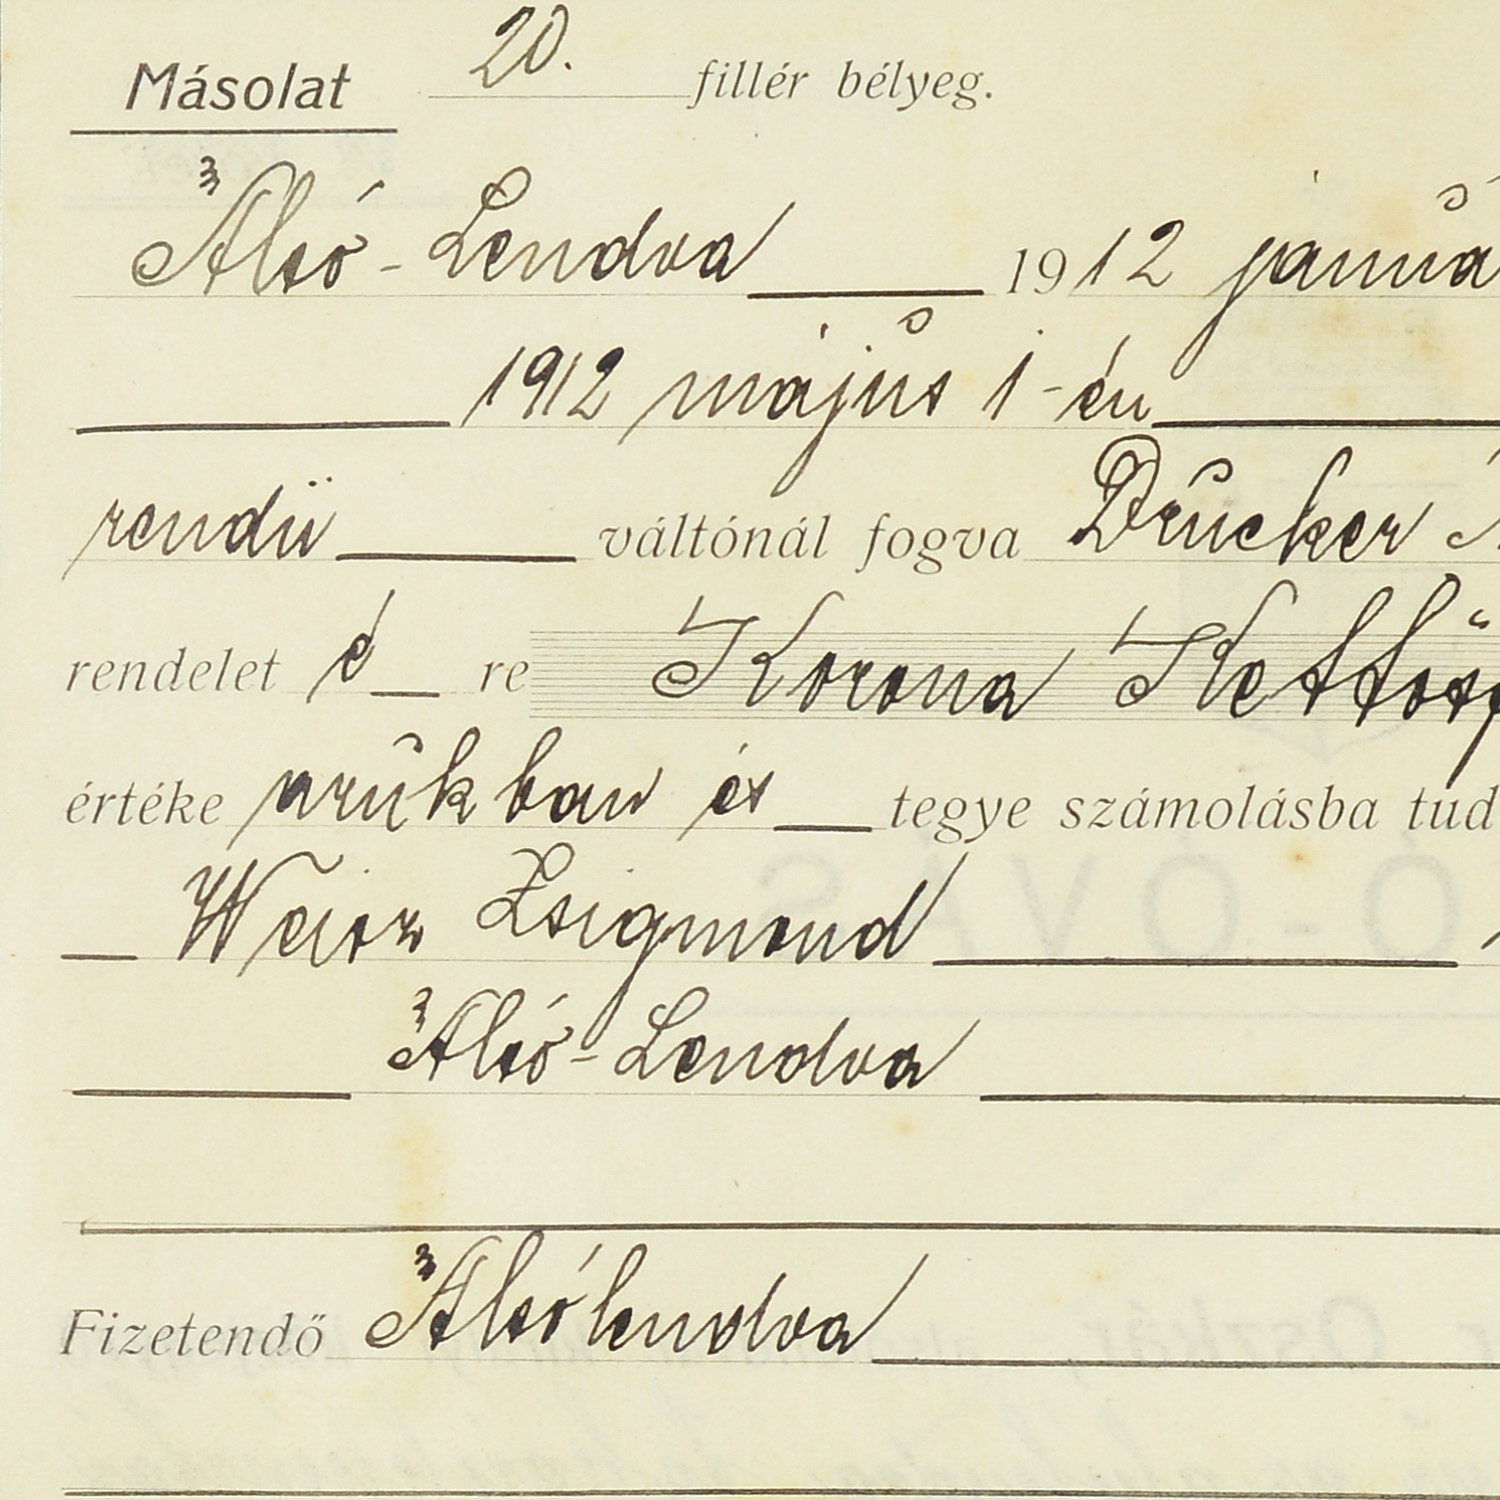 Másolat 20. fillér bélyeg.
Alsó-Lendva 1912 januá
1912 május 1-én
rendü váltónál fogva Drucker
rendelet é re Korona Kettősz
értéke árúkban és tegye számolásba tud
Weisz Zsigmond
Alsó-Lendva
Fizetendő Alsólendva